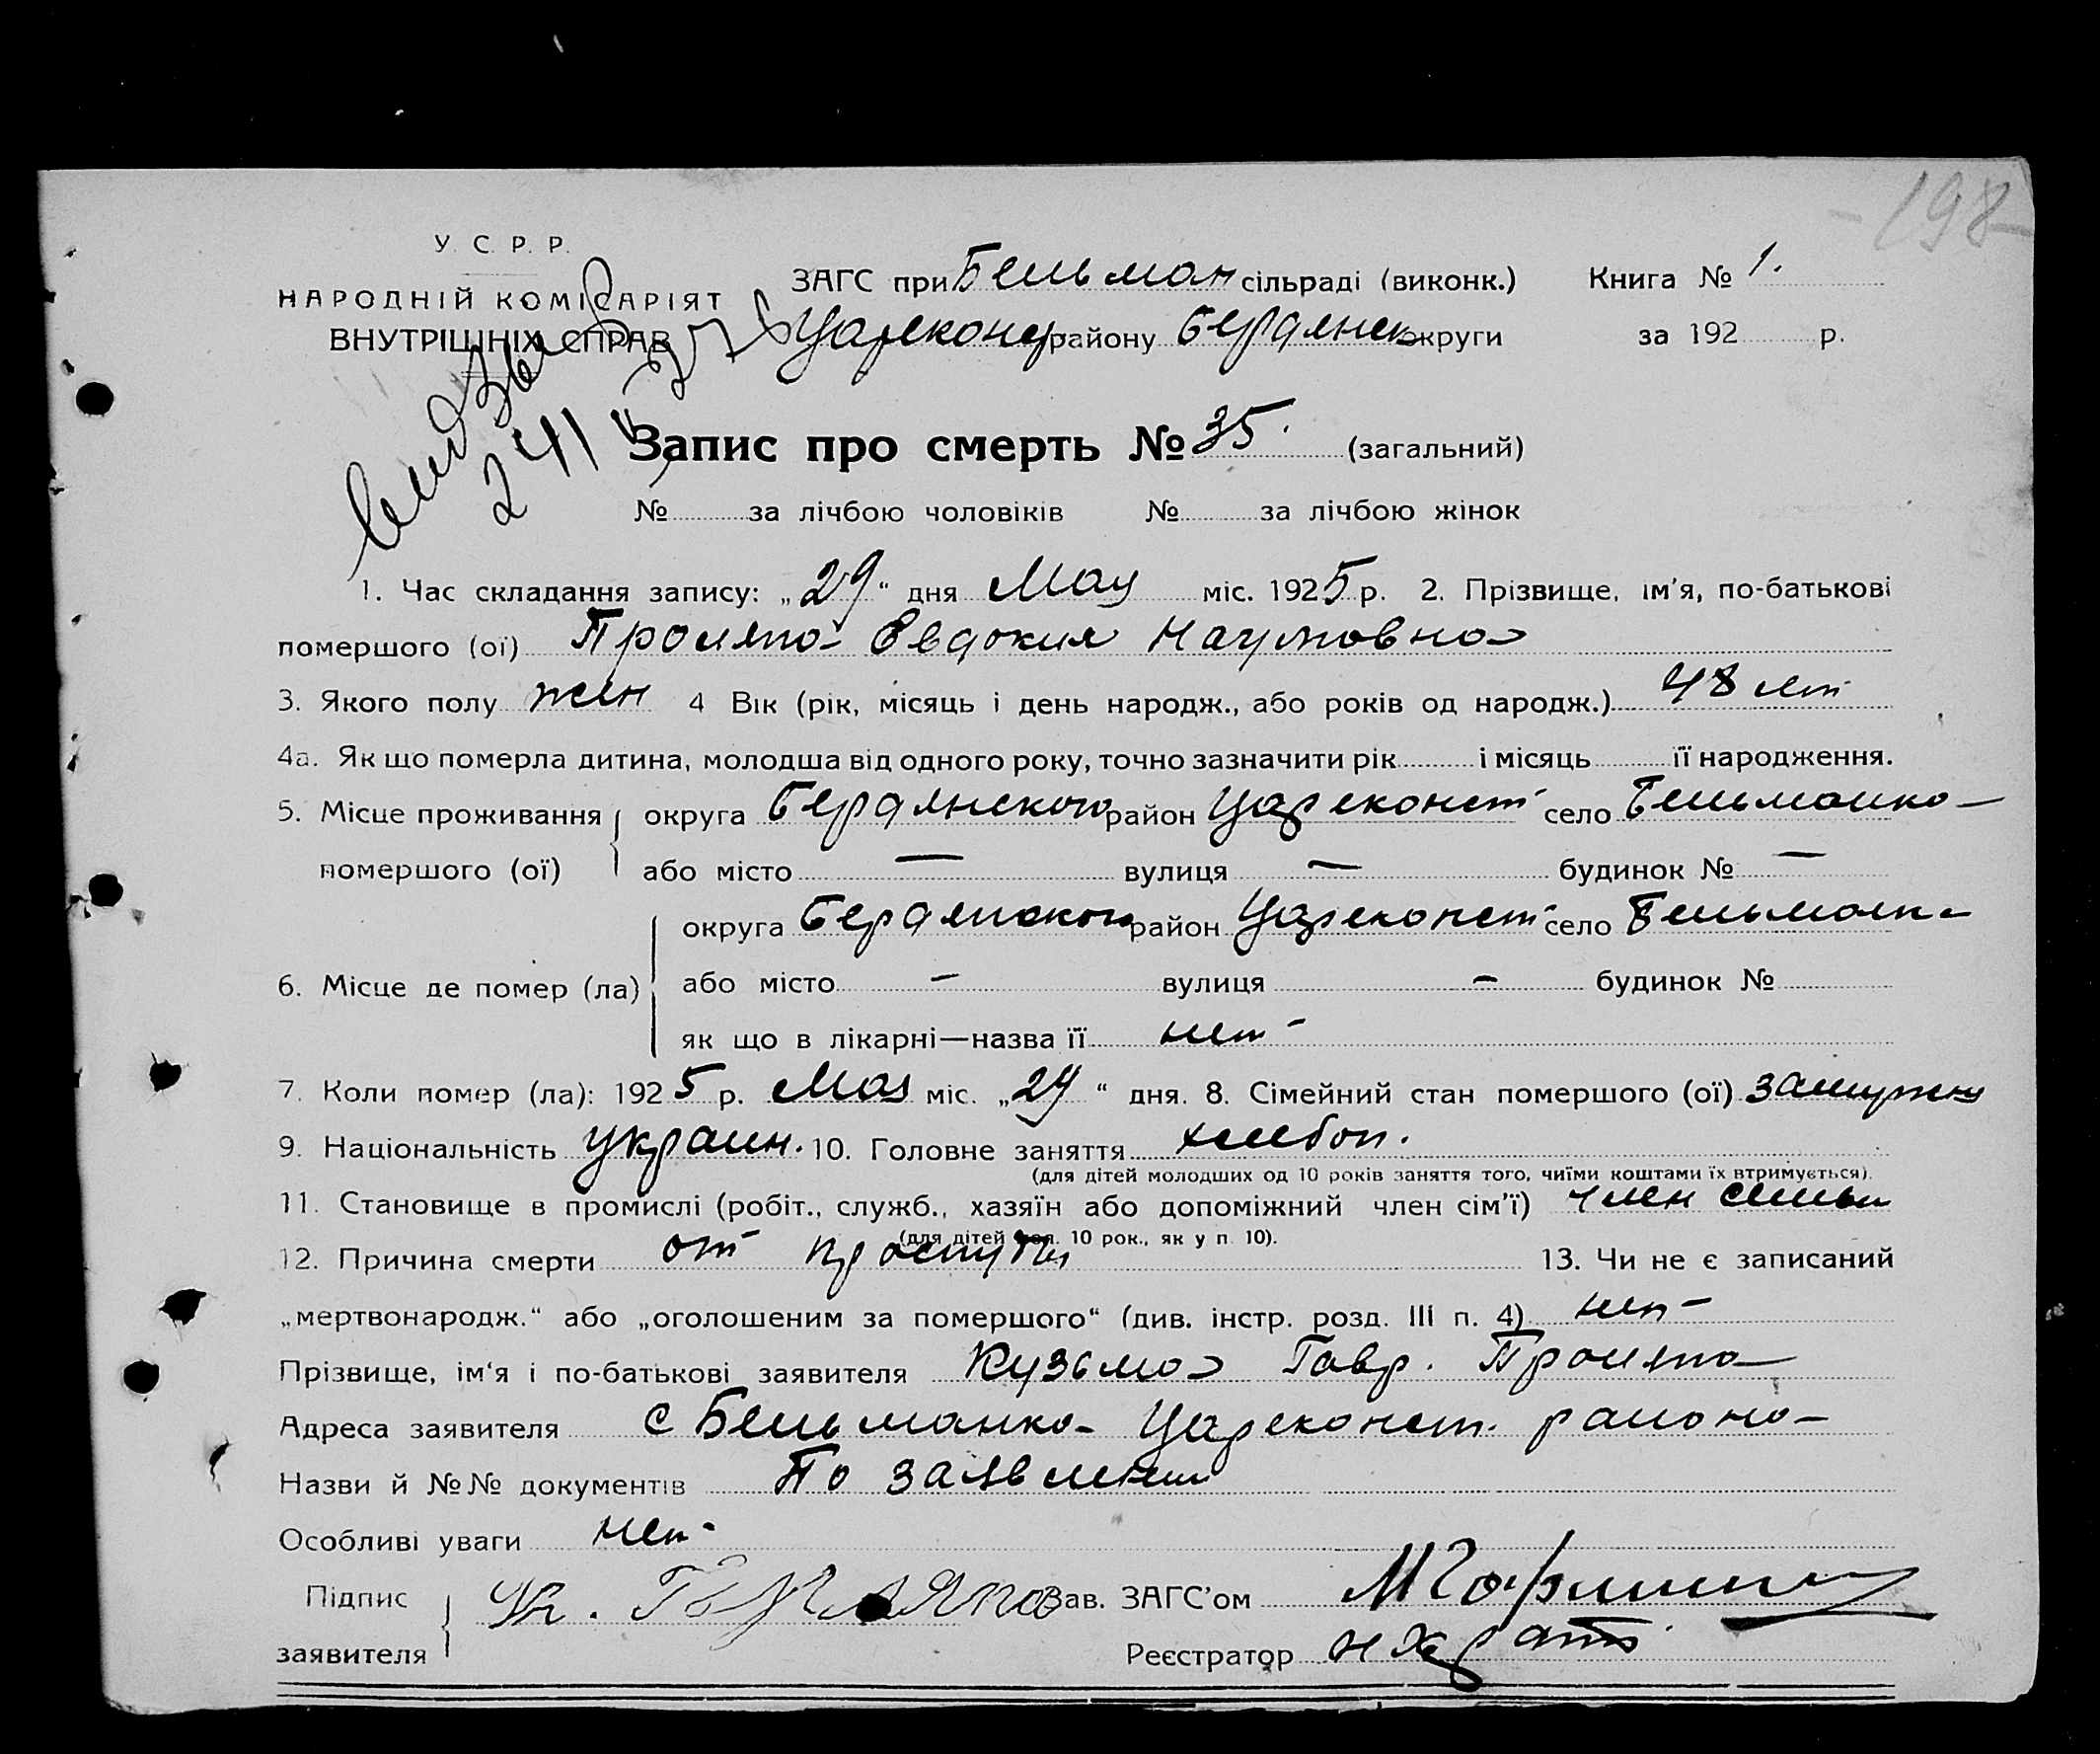 -198-
У. С. Р. Р.
НАРОДНІЙ КОМІСАРІЯТ
ВНУТРІШНІХ СПРАВ
ЗАГС при Бельман сільраді (виконк.) Книга № 1.
Цареконс району Бердянск округи за 192 р.
241
Запис про смерть № 35. (загальний)
№ за лічбою чоловіків № за лічбою жінок
1. Час складання запису: „29“ дня Мая міс. 1925 р. 2. Прізвище, ім'я, по-батькові
помершого (ої) Евдокия Наумовна
3. Якого полу жен 4 Вік (рік, місяць і день народж., або років од народж.) 48 лет
4а. Як що померла дитина, молодша від одного року, точно зазначити рік і місяць її народження.
5. Місце проживання округа Бердянского район Цареконст село Бельманка
помершого (ої) або місто — вулиця — будинок № —
округа Бердянского район Цареконст село Бельманк
6. Місце де помер (ла) або місто – вулиця – будинок №
як що в лікарні—назва її нет
7. Коли помер (ла): 1925 р. Мая міс. „29“ дня. 8. Сімейний стан помершого (ої) замужня
9. Національність украин. 10. Головне заняття хлебоп.
(для дітей молодших од 10 років заняття того, чиїми коштами їх втримується).
11. Становище в промислі (робіт., служб., хазяїн або допоміжний член сім'ї) член семьи
(для дітей мол. 10 рок., як у п. 10).
12. Причина смерти от простуды 13. Чи не є записаний
„мертвонародж.“ або „оголошеним за помершого“ (див. інстр. розд. III п. 4) нет
Прізвище, ім‘я і по-батькові заявителя Кузьма Гавр.
Адреса заявителя с Бельманка Цареконст. района
Назви й №№ документів По заявлению
Особливі уваги нет
Підпис Зав. ЗАГС'ом
заявителя Реєстратор